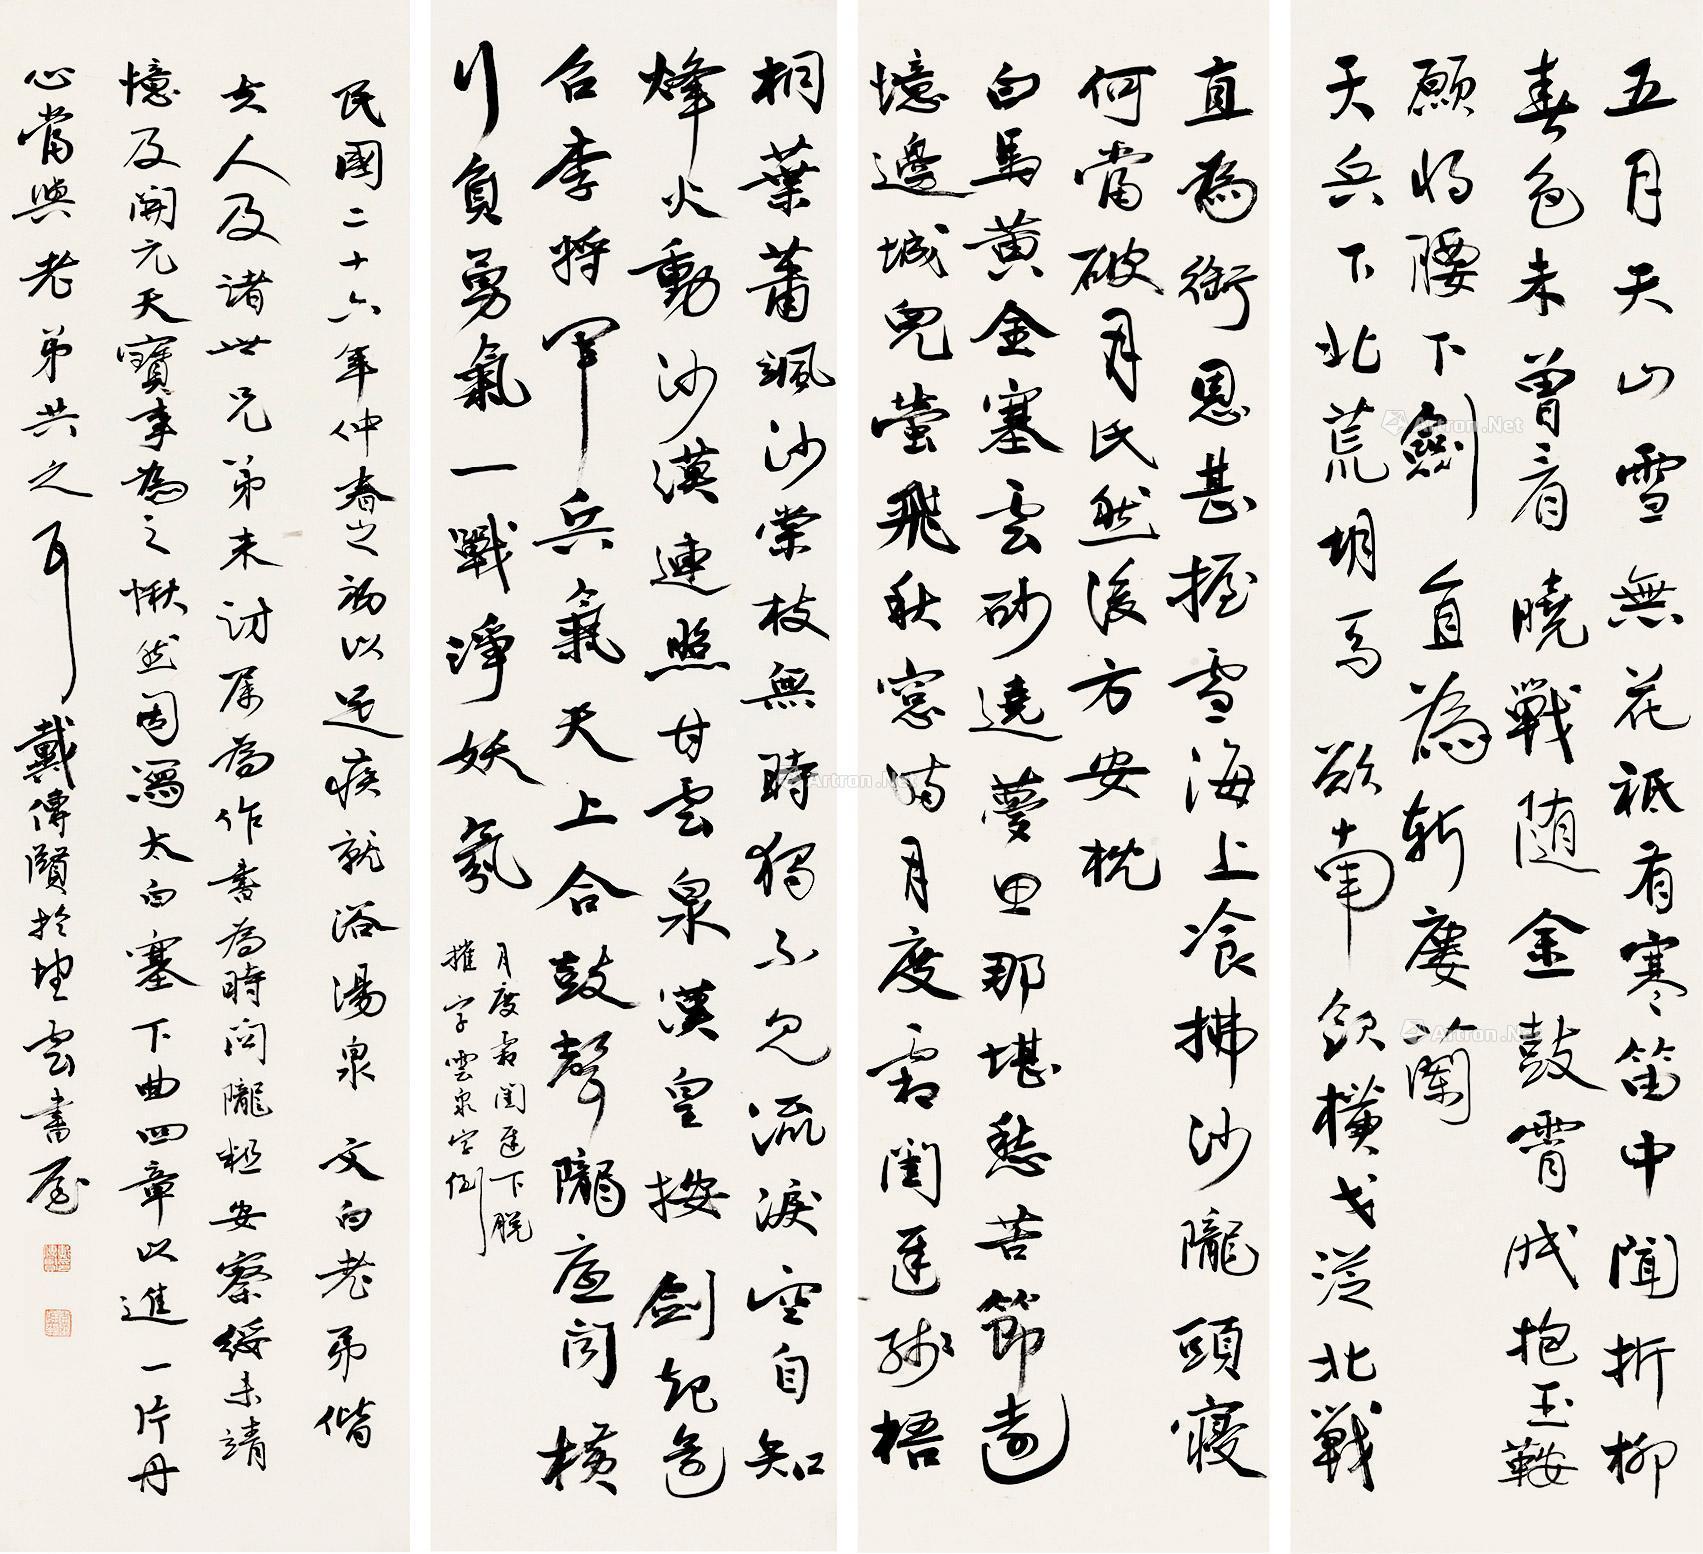 五月天山雪無花祗有寒笛中聞折柳
春色未曾看曉戰随金鼓霄眠抱玉鞍
願將腰下劍直為斬婁蘭
天兵下北荒胡馬欲南飲橫戈從北戰
直為銜恩甚握雪海上飡拂沙隴頭寢
何當破月氏然後方安枕
白馬黄金塞雲砂遶夢思那堪愁苦節遠
憶邊城兒萤飛秋窓满月度霜閨遲殘梧
桐葉蕭颯沙棠枝無時獨不見流淚空自知
烽火動沙漠連照甘雲泉漢皇按劍起還
召李將軍兵氣天上合鼓聲隴底聞橫
行負勇氣一戰淨妖氛
月度霜閨遲下脱
摧字雲泉字倒
民國二十六年仲春之初以足疾就浴湯泉 文白老弟偕
夫人及諸世兄弟来訪屬為作書為時問隴粗安察綏未靖
憶及開元天寶事為之愀然因寫太白塞下曲四章以進一片丹
心當與老弟共之耳 戴傳賢於望雲書屋
Artron.Net
Artron.Net
Artron.Net